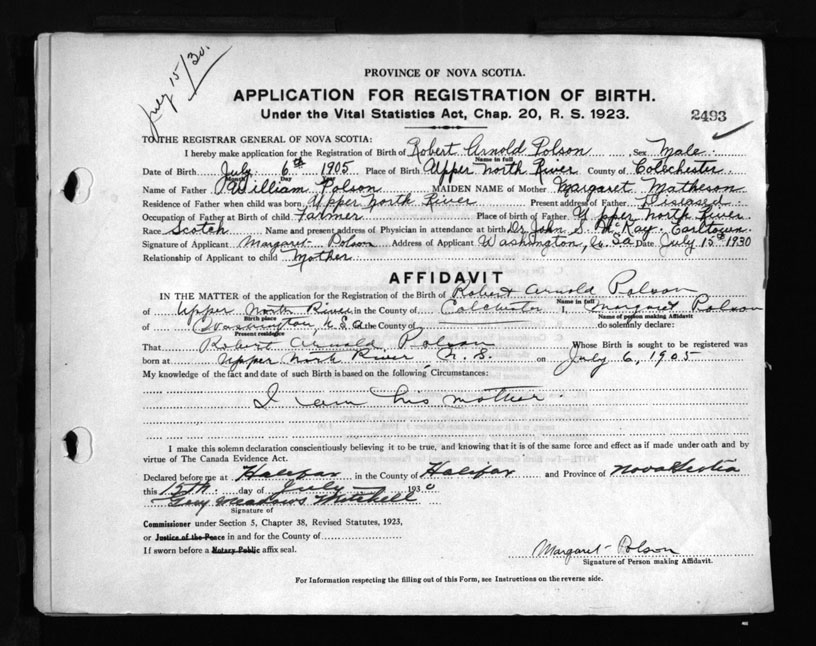 July 15/30.
PROVINCE OF NOVA SCOTIA.
APPLICATION FOR REGISTRATION OF BIRTH.
Under the Vital Statistics Act, Chap. 20, R. S. 1923.
2493
TO THE REGISTRAR GENERAL OF NOVA SCOTIA:
I hereby make application for the Registration of Birth of Robert Arnold Polson Sex Male
Name in full
Date of Birth July 6th 1905 Place of Birth Upper North River County of Colechester
Month Day Year
Name of Father William Polson MAIDEN NAME of Mother Margaret Matheson
Residence of Father when child was born, Upper North River Present address of Father Diseased
Occupation of Father at Birth of child Farmer Place of birth of Father Upper North River
Race Scotch Name and present address of Physician in attendance at birth Dr John S. McKay. Earltown
Signature of Applicant Margaret Polson Address of Applicant Washington, U. Sa Date July 15th 1930
Relationship of Applicant to child Mother
AFFIDAVIT
IN THE MATTER of the application for the Registration of the Birth of Robert Arnold Polson
Name in full
of Upper North River, in the County of Colchester I, Margaret Polson
Birth place Name of person making Affidavit
of Washington, U.S.A. the County of do solemnly declare:
Present residence
That Robert Arnold Polson Whose Birth is sought to be registered was
born at Upper North River N. S. on July 6, 1905
My knowledge of the fact and date of such Birth is based on the following Circumstances:
I am his mother.
I make this solemn declaration conscientiously believing it to be true, and knowing that it is of the same force and effect as if made under oath and by
virtue of The Canada Evidence Act.
Declared before me at Halifax in the County of Halifax and Province of Nova Scotia
this 15th. day of July 1930
Meadows Mitchell
Signature of
Commissioner under Section 5, Chapter 38, Revised Statutes, 1923,
or Justice of the Peace in and for the County of
If sworn before a Notary Public affix seal.
Margaret Polson
Signature of Person making Affidavit.
For Information respecting the filling out of this Form, see Instructions on the reverse side.